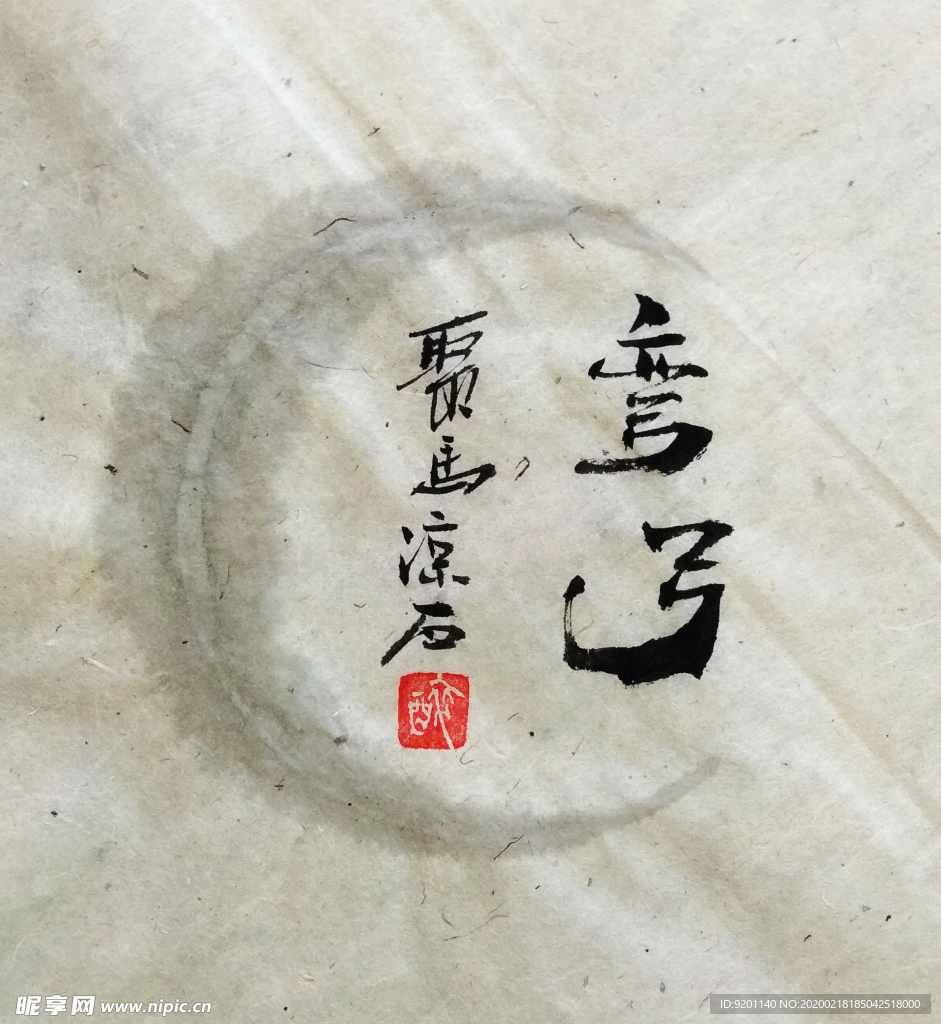 弯弓
聚馬涼石
醉
昵享网 www.nipic.cn
ID:9201140 NO:20200218185042518000